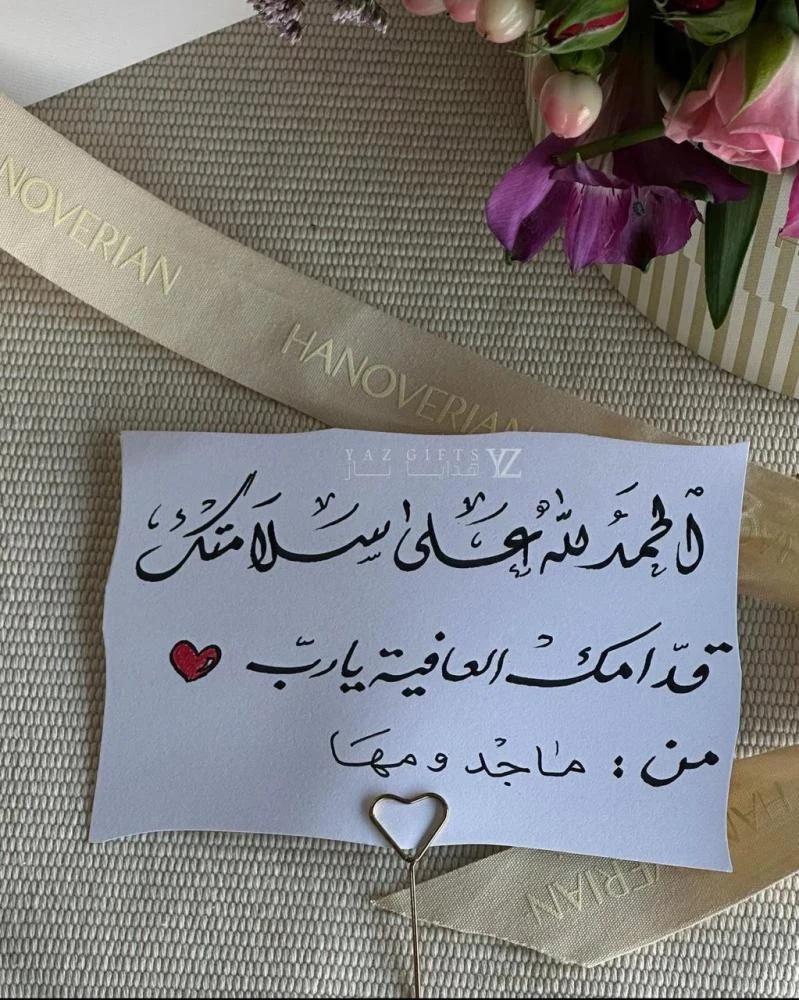 HANOVERIAN
HANOVERIAN
YAZ GIFTS YZ
هدايا ياز
الحمدُ للهِ على سلامتك
قدّامك العافية ياربّ ❤
من : ماجد ومها